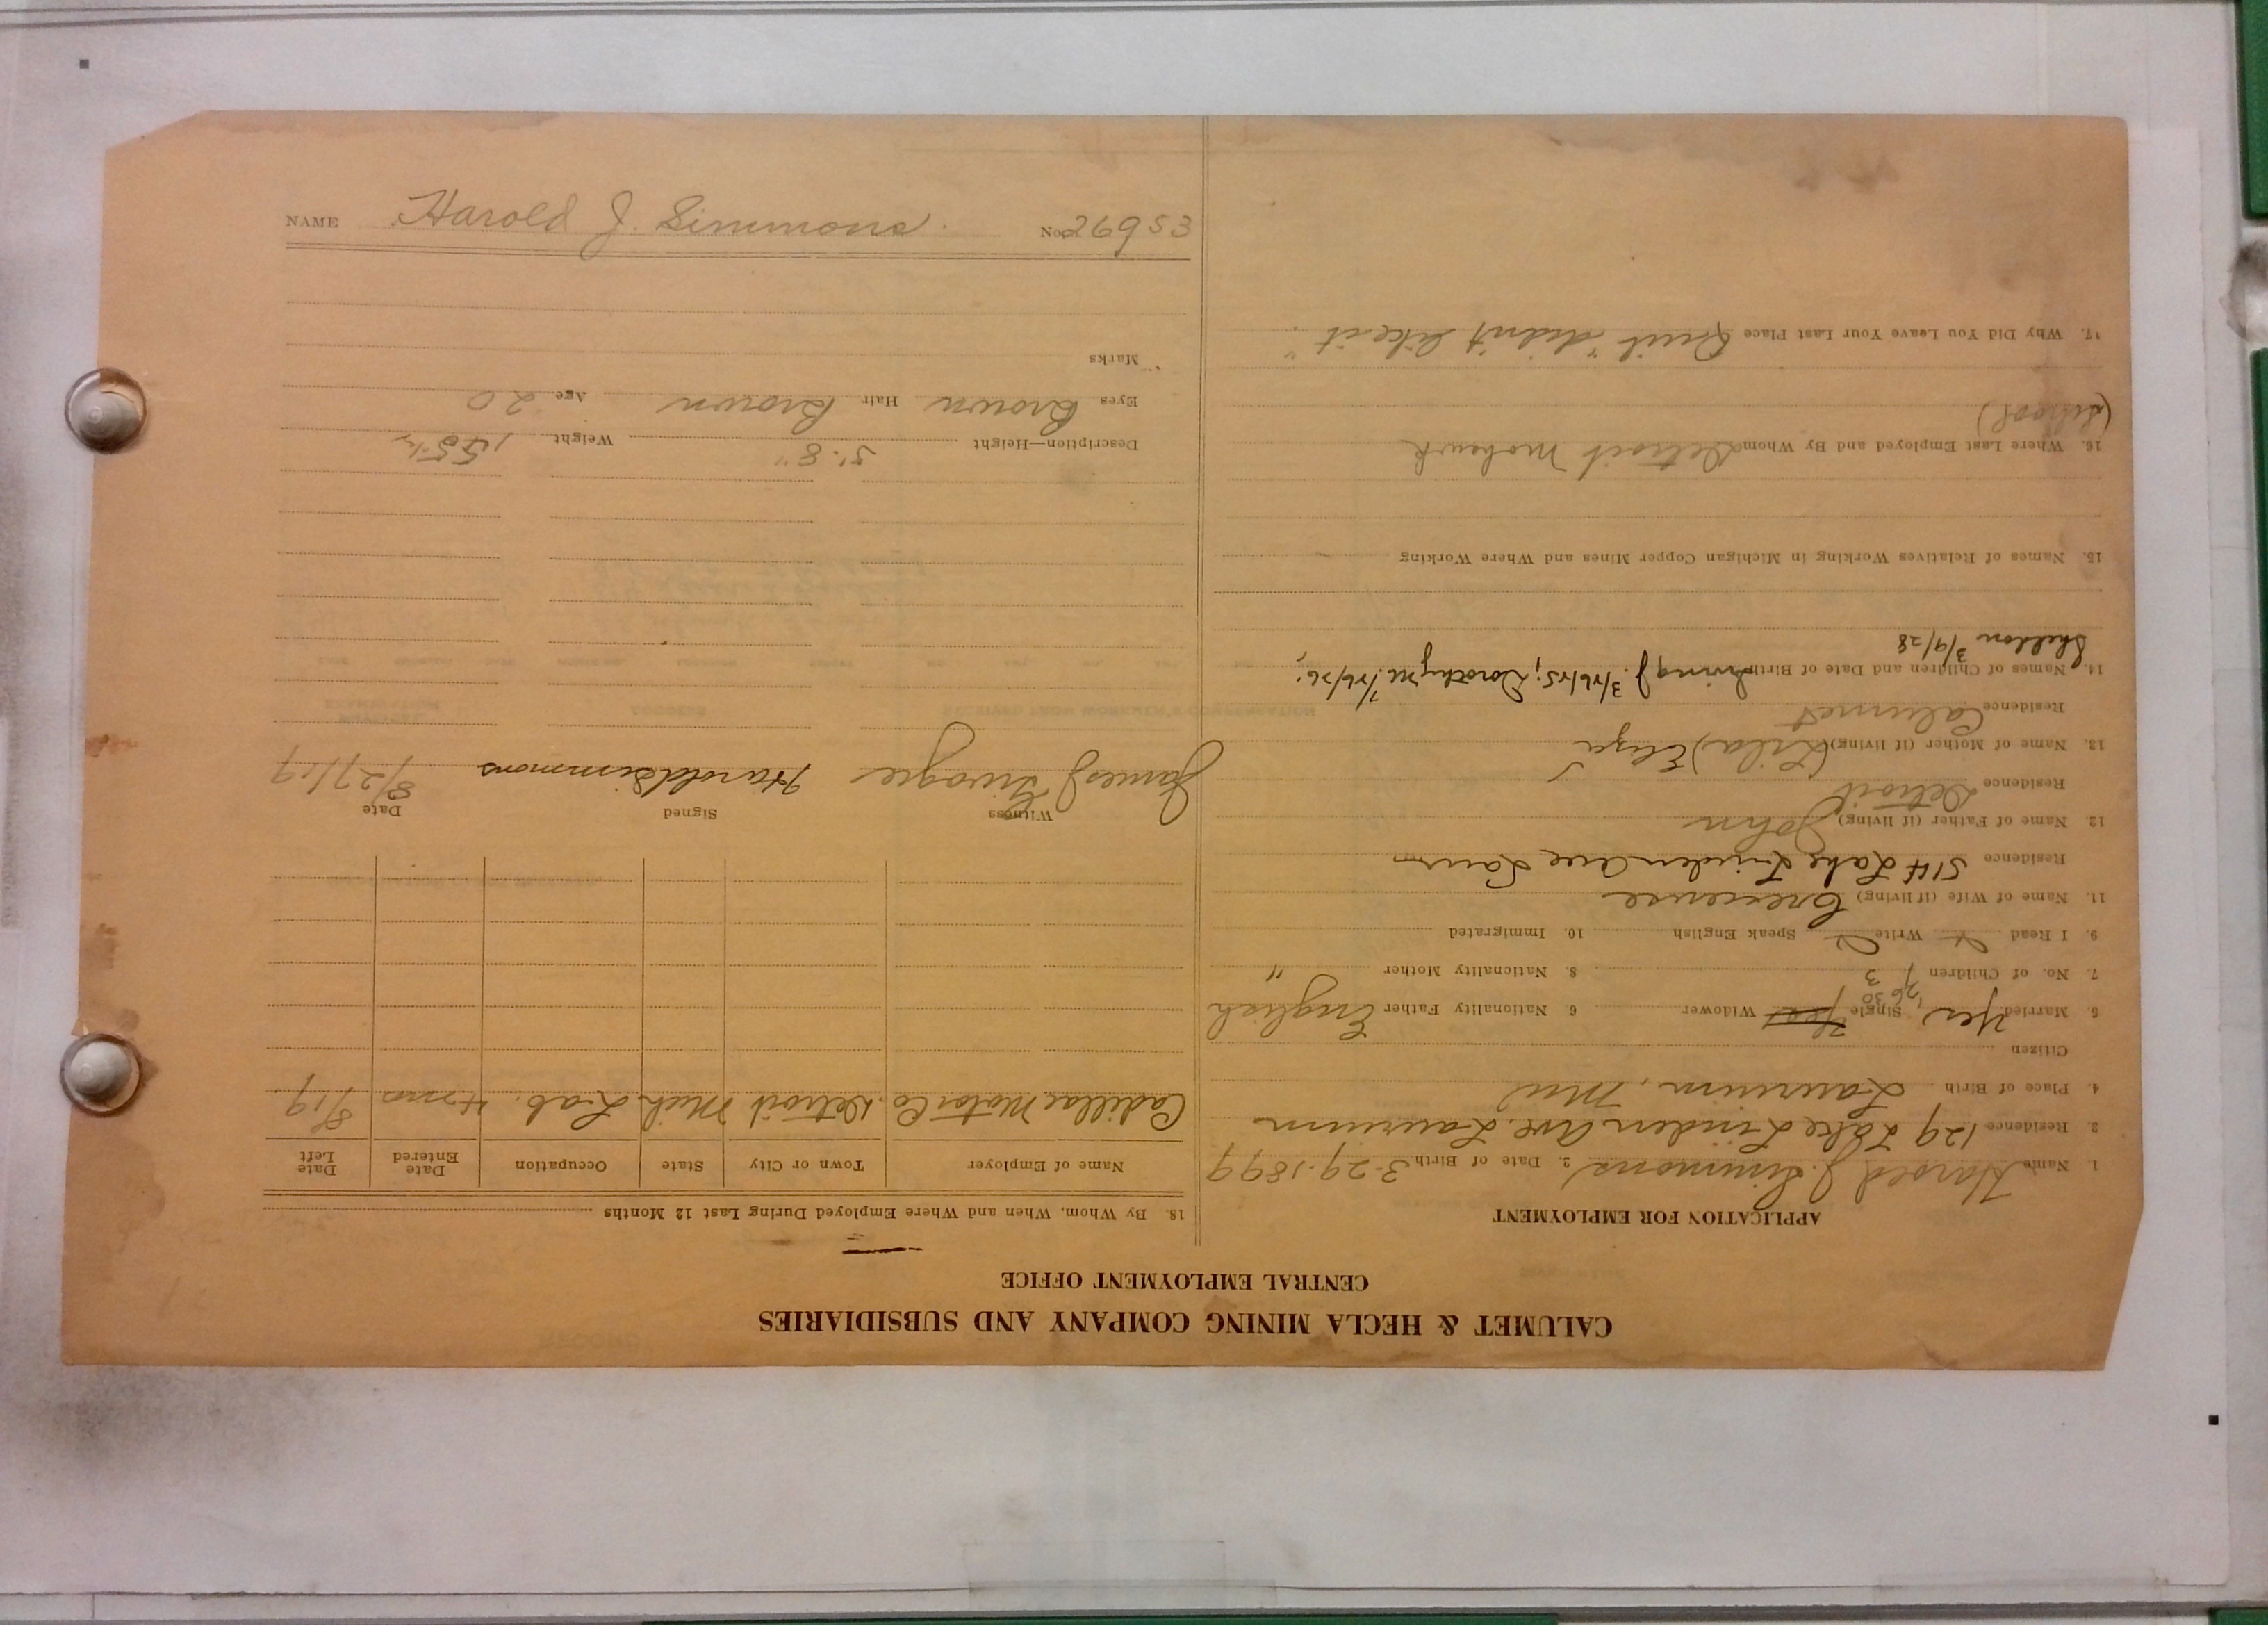 NAME Harold J. Simmons. No. 26953
CALUMET & HECLA MINING COMPANY AND SUBSIDIARIES
CENTRAL EMPLOYMENT OFFICE
APPLICATION FOR EMPLOYMENT
1. Name Harold J. Simmons 2. Date of Birth 3-29-1899
3. Residence 129 Lake Linden Ave. Laurium
4. Place of Birth Laurium, Mich
Citizen
5. Married Yes Single Yes Widower 6. Nationality Father English
7. No. of Children 3 8. Nationality Mother "
9. I Read Write Speak English 10. Immigrated
11. Name of Wife (if living)
Residence 514 Lake Linden Ave Laur
12. Name of Father (if living) John
Residence Detroit
13. Name of Mother (if living) (Lila) Eliza
Residence Calumet
14. Names of Children and Date of Birth Irving J. 3/26/25; Dorothy M. 7/26/26;
Sheldon 3/9/28
15. Names of Relatives Working in Michigan Copper Mines and Where Working
16. Where Last Employed and By Whom Detroit Mohawk
(School)
17. Why Did You Leave Your Last Place Quit "didn't like it"
18. By Whom, When and Where Employed During Last 12 Months
Name of Employer Town or City State Occupation Date Entered Date Left
Cadillac Motor Co. Detroit Mich Lab. 4 mos 8/19
Witness Signed Date
James J Harold Simmons 8/27/19
Description—Height 5'-8" Weight 155 1/2
Eyes Brown Hair Brown Age 20
Marks